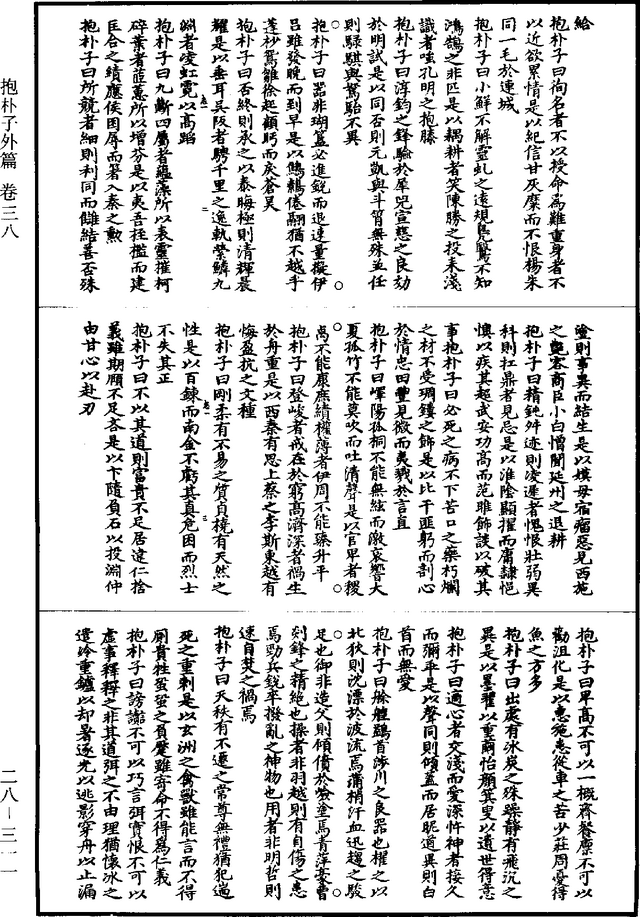 給
抱朴子曰徇名者不以授命為難重身者不
以近欲累情是以紀信甘灰糜而不恨楊朱
同一毛於連城
抱朴子曰小鮮不解靈虬之遠規鳧鷖不知
鴻鵠之非匹是以耦耕者笑陳勝之投耒淺
識者嗤孔明之抱膝
抱朴子曰淳鈞之鋒驗於犀兕宣慈之良効
於明試是以同否則元凱與斗筲無殊並任
則騄騏與駑駘不異
抱朴子曰器非瑚簋必進銳而退速量擬伊
呂雖發晚而到早是以鷦鷯倦翮猶不越乎
蓬杪鴛雛徐起顧眄而戾蒼昊
抱朴子曰否終則承之以泰晦極則清輝晨
耀是以垂耳吳阪者騁千里之逸軌縈鱗九
淵者凌虹霓以高蹈
抱朴子曰九斷四屬者蘊藻所以表靈摧柯
碎葉者茝蕙所以增芬是以夷吾桎檻而建
匡合之績應侯困辱而著入秦之勲
抱朴子曰所競者細則利同而讎結善否殊
塗則事異而結生是以嫫母宿瘤惡見西施
之艷容商臣小白憎聞延州之退耕
抱朴子曰精鈍舛迹則凌遲者愧恨壯弱異
科則扛鼎者見忌是以淮陰顯擢而庸隸悒
懊以疾其超武安功高而范雎飾談以破其
事抱朴子曰必死之病不下苦口之藥朽爛
之材不受琱鏤之飾是以比干匪躬而剖心
於情忠田豐見微而夷戮於言直
抱朴子曰嶧陽孤桐不能無絃而激哀響大
夏孤竹不能莫吹而吐清聲是以官卑者稷
卨不能康庶績權薄者伊周不能臻升平
抱朴子曰登峻者戒在於窮高濟深者禍生
於舟重是以西秦有思上蔡之李斯東越有
悔盈抗之文種
抱朴子曰剛柔有不易之質貞橈有天然之
性是以百鍊而南金不虧其真危困而烈士
不失其正
抱朴子曰不以其道則富貴不足居違仁捨
義雖期頤不足吝是以卞隨負石以投淵仲
由甘心以赴刃
抱朴子曰卑高不可以一概齊餐廩不可以
勸沮化是以惠施患從車之苦少莊周憂得
魚之方多
抱朴子曰出處有冰炭之殊躁靜有飛沉之
異是以墨翟以重繭怡顏箕叟以遺世得意
抱朴子曰適心者交淺而愛深忤神者接久
而彌乖是以聲同則傾蓋而居昵道異則白
首而無愛
抱朴子曰艅艎鷁首涉川之良器也櫂之以
北狄則沈漂於波流焉蒲梢汗血迅趨之駿
足也御非造父則傾僨於嶮塗焉青萍豪曹
剡鋒之精絕也操者非羽越則有自傷之患
焉勁兵銳卒撥亂之神物也用者非明哲則
速自焚之禍焉
抱朴子曰天秩有不遷之常尊無禮猶犯遄
死之重刺是以玄洲之禽獸雖能言而不得
厠貴牲蛩蛩之負蟨雖寄命不得為仁義
抱朴子曰謗讟不可以巧言弭實恨不可以
虛事釋釋之非其道弭之不由理猶懷冰之
遣冷重鑪以却暑逐光以逃影穿舟以止漏
抱朴子外篇 卷三八
二八—三一一